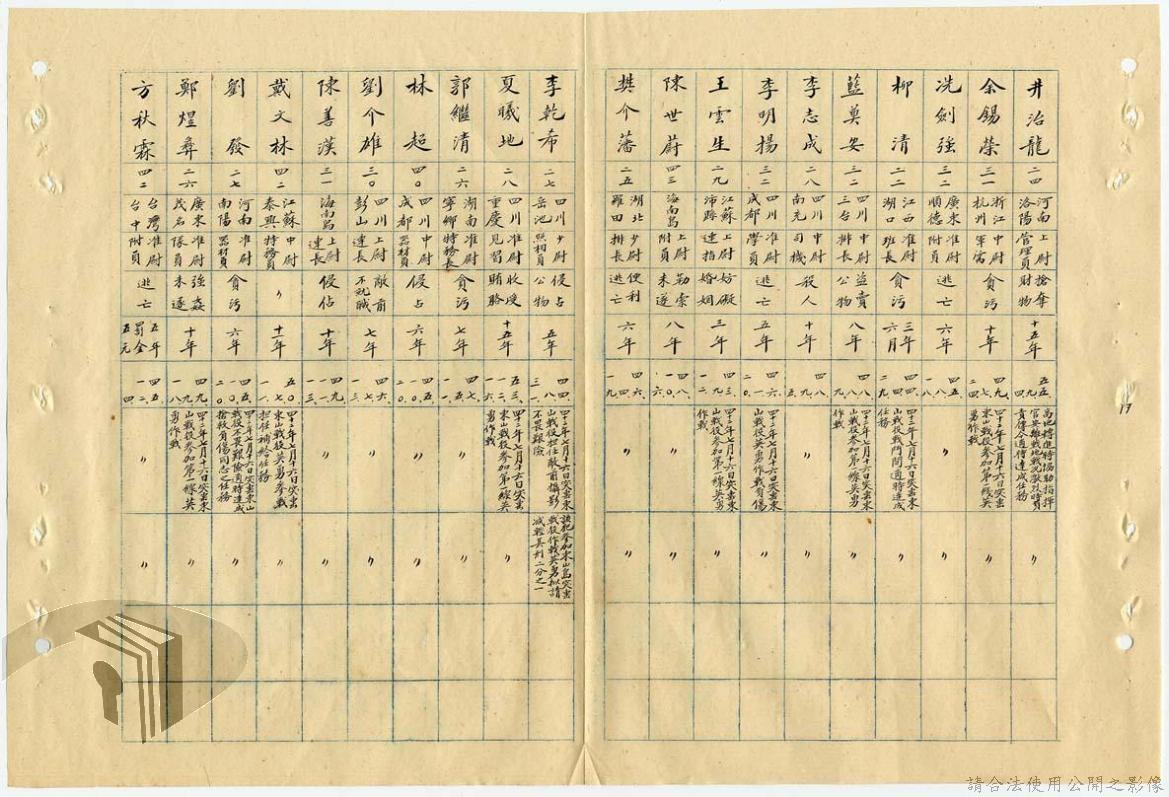 井治龍 二四 河南洛陽 上尉管理員 搶奪財物 十五年 五五、 高地轉進時協助指揮官英雄戰地戰況激烈時負責傳令適時達成任務
余錫榮 三一 浙江杭州 中尉軍需 貪污 十年 四七、 四十二年七月十六日突擊東山戰役參加第一線英勇作戰
冼劍強 三二 廣東順德 准尉附員 逃亡 六年 〃 〃
柳清 二二 江西湖口 中尉班長 貪污 三年六月 四四、 四十二年七月十六日突擊東山戰役戰鬥間適時達成任務
藍奠安 三二 四川三台 中尉排長 盜賣公物 八年 四八、 四十二年七月十六日突擊東山戰役參加第一線英勇作戰
李志成 二八 四川南充 中尉司機 殺人 十年 〃 〃
李明揚 三二 四川成都 准尉學員 逃亡 五年 四六、 四十二年七月十六日突擊東山戰役英勇作戰負傷 〃
王雲生 二九 江蘇沛縣 上尉連指 妨礙婚姻 三年 四三、 四十二年七月十六日突擊東山戰役參加第一線英勇作戰
陳世蔚 四三 海南島 上尉附員 勒索未遂 八年 四八、 〃 〃
樊介藩 二五 湖北羅田 少尉排長 便利逃亡 六年 四六、 〃 〃
李乾希 二七 四川岳池 少尉照相員 侵占公物 五年 四四、 四十二年七月十六日突擊東山戰役担任敵前攝影不畏艱險 該犯參加東山島突擊戰役作戰英勇擬請減輕其刑二分之一
夏曦地 二八 四川重慶 准尉見習 收受賄賂 十五年 五三、 四十二年七月十六日突擊東山戰役參加第一線英勇作戰 〃
郭繼清 二六 湖南寧鄉 准尉特務長 貪污 七年 四七、 〃 〃
林超 四〇 四川成都 中尉器材員 侵占 六年 四五、 〃 〃
劉介雄 三〇 四川彭山 上尉連長 敵前不就職 七年 四六、 〃 〃
陳善漢 三一 海南島 上尉連長 侵佔 十年 四九、 〃 〃
戴文林 四二 江蘇泰興 中尉特務員 〃 十二年 五〇、 四十二年七月十六日突擊東山戰役英勇參戰担任補給任務 〃
劉發 二七 河南南陽 准尉器材員 貪污 六年 四四、 四十二年七月十六日突擊東山戰役不畏艱險適時達成搶救負傷同志之任務 〃
鄭煜彝 二六 廣東茂名 准尉隊員 強姦未遂 十年 四九、 四十二年七月十六日突擊東山戰役參加第一線英勇作戰 〃
方秋霖 四二 台灣台中 准尉附員 逃亡 五年罰金五元 四五、 〃 〃
17
請合法使用公開之影像